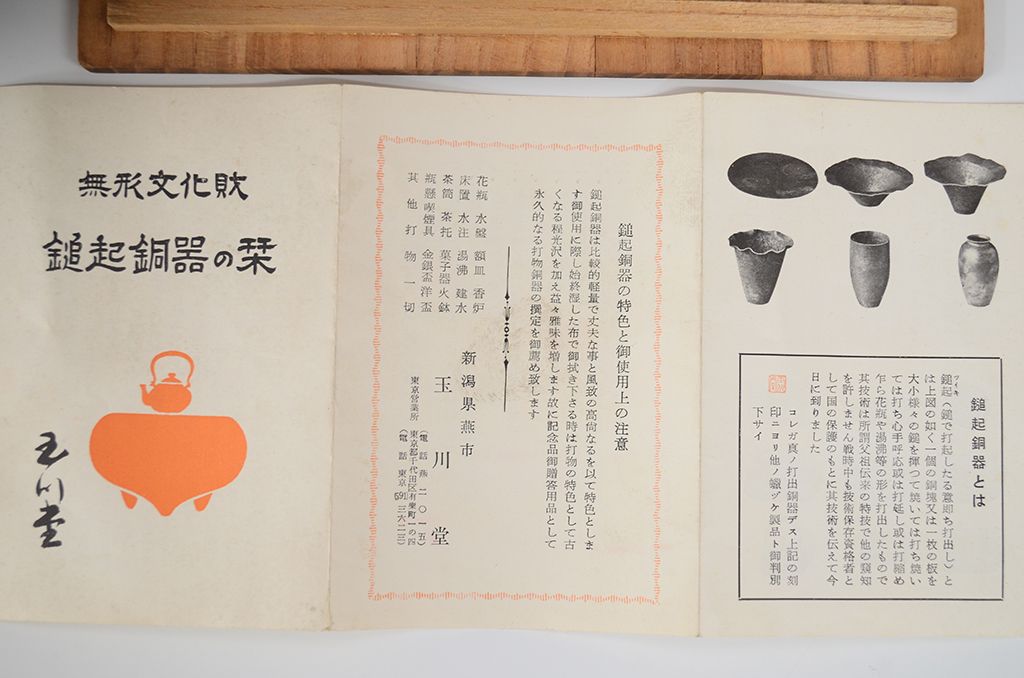 無形文化財
鎚起銅器の栞
玉川堂
鎚起銅器の特色と御使用上の注意
鎚起銅器は比較的軽量で丈夫な事と風致の高尚なるを以て特色としま
す御使用に際し始終湿した布で御拭き下さる時は打物の特色として古
くなる程光沢を加え益々雅味を増します故に記念品御贈答用品として
永久的なる打物銅器の撰定を御薦め致します
花瓶 水盤 額皿 香炉
床置 水注 湯沸 建水
茶筒 茶托 菓子器 火鉢
瓶懸 喫煙具 金銀盃 洋盃
其他打物一切
新潟県燕市
玉川堂
(電話 燕 二〇一五)
東京営業所
東京都千代田区有楽町一の四
(電話 東京 591 三六二三)
鎚起銅器とは
ツイキ
鎚起(鎚で打起したる意即ち打出し)と
は上図の如く一個の銅塊又は一枚の板を
大小様々の鎚を揮つて焼いては打ち焼い
ては打ち心手呼応或は打延し或は打縮め
乍ら花瓶や湯沸等の形を打出したもので
其技術は所謂父祖伝来の特技で他の窺知
を許しません戦時中も技術保存資格者と
して国の保護のもとに其技術を伝えて今
日に到りました
コレガ真ノ打出銅器デス上記の刻
印ニヨリ他ノ蠟ヅケ製品ト御判別
下サイ